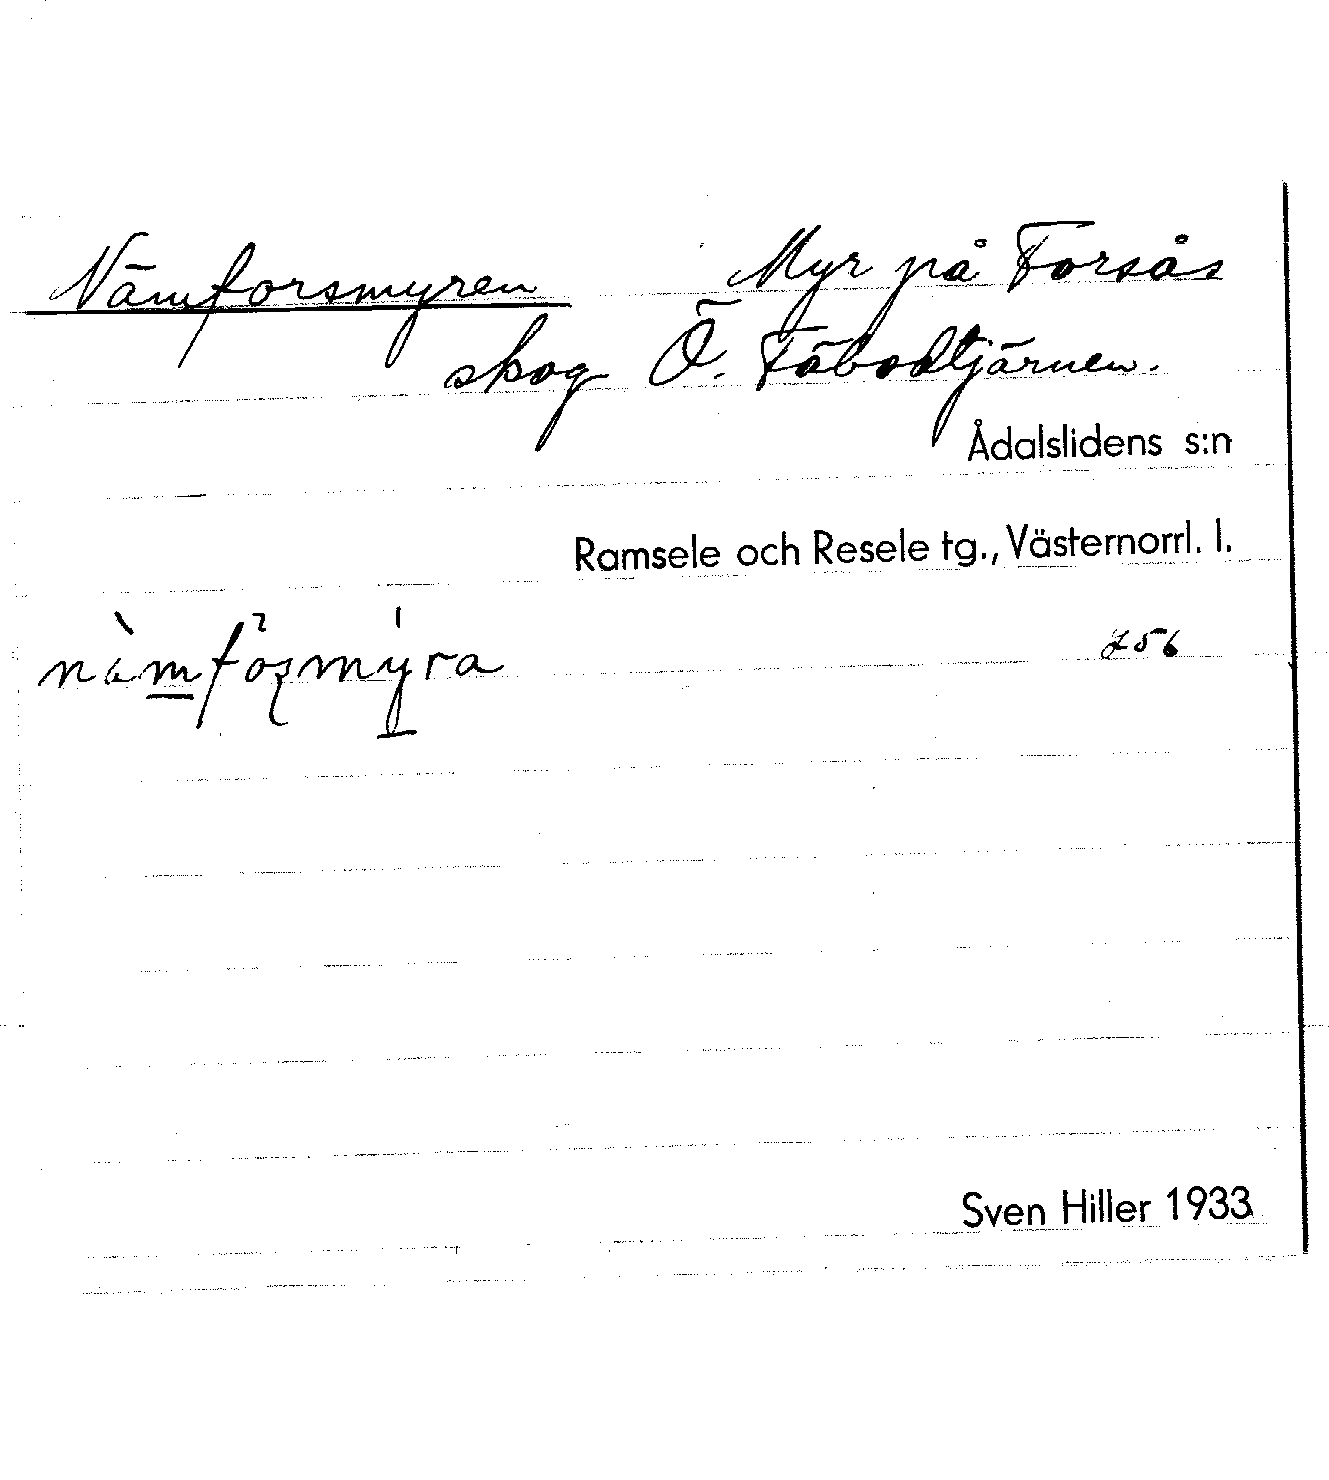 Nämforsmyren Myr på Forsås
skog Ö. Fäbodtjärnen.
Ådalslidens s:n
Ramsele och Resele tg., Västernorrl. l.
256
Sven Hiller 1933